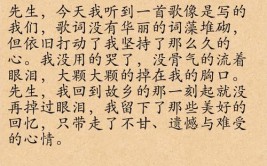 先生，今天我听到一首歌像是写的
我们，歌词没有华丽的词藻堆砌，
但依旧打动了我坚持了那么久的
心。我没用的哭了，没骨气的流着
眼泪，大颗大颗的掉在我的胸口。
先生，我回到故乡的那一刻起就没
再掉过眼泪，我留下了那些美好的
回忆，只带走了不甘、遗憾与难受
的心情。